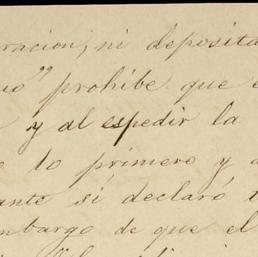 racion, ni deposita
uo" prohibe que e
y al espedir la
lo primero y a
ante si declaró t
mbargo de que el